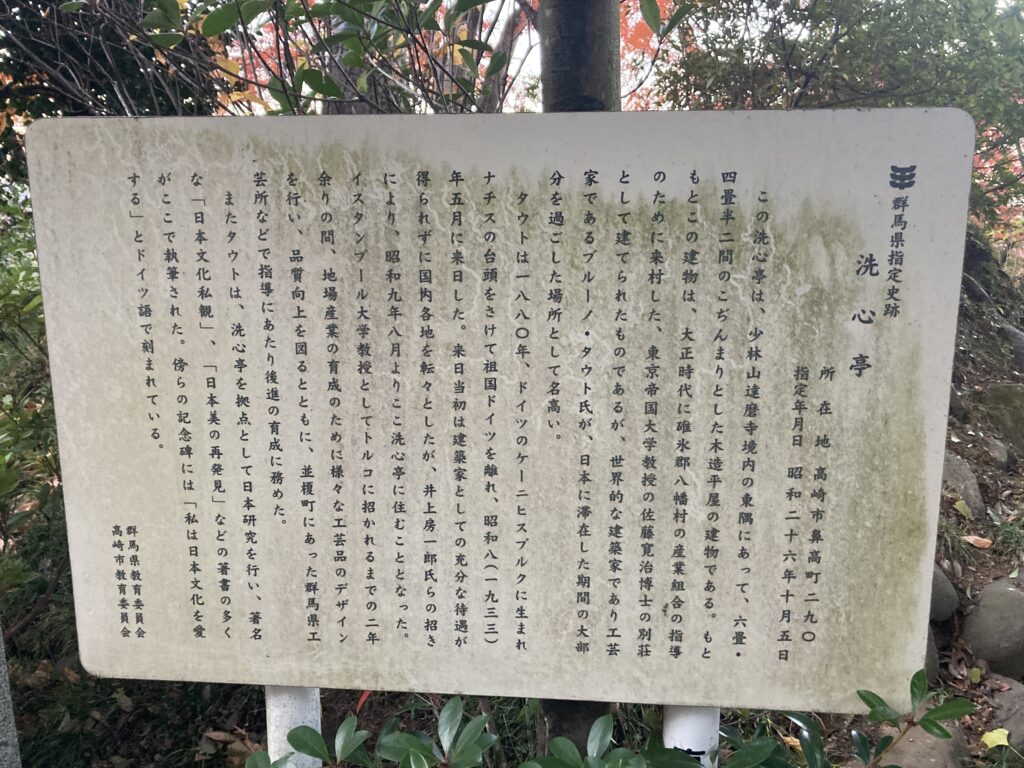 群馬県指定史跡
洗心亭
所在地 高崎市鼻高町二九〇
指定年月日 昭和二十六年十月五日
この洗心亭は、少林山達磨寺境内の東隅にあって、六畳・
四畳半二間のこぢんまりとした木造平屋の建物である。もと
もとこの建物は、大正時代に碓氷郡八幡村の産業組合の指導
のために来村した、東京帝国大学教授の佐藤寛治博士の別荘
として建てられたものであるが、世界的な建築家であり工芸
家であるブルーノ・タウト氏が、日本に滞在した期間の大部
分を過ごした場所として名高い。
タウトは一八八〇年、ドイツのケーニヒスブルクに生まれ
ナチスの台頭をさけて祖国ドイツを離れ、昭和八(一九三三)
年五月に来日した。来日当初は建築家としての充分な待遇が
得られずに国内各地を転々としたが、井上房一郎氏らの招き
により、昭和九年八月よりここ洗心亭に住むこととなった。
イスタンブール大学教授としてトルコに招かれるまでの二年
余りの間、地場産業の育成のために様々な工芸品のデザイン
を行い、品質向上を図るとともに、並榎町にあった群馬県工
芸所などで指導にあたり後進の育成に務めた。
またタウトは、洗心亭を拠点として日本研究を行い、著名
な「日本文化私観」、「日本美の再発見」などの著書の多く
がここで執筆された。傍らの記念碑には「私は日本文化を愛
する」とドイツ語で刻まれている。
群馬県教育委員会
高崎市教育委員会